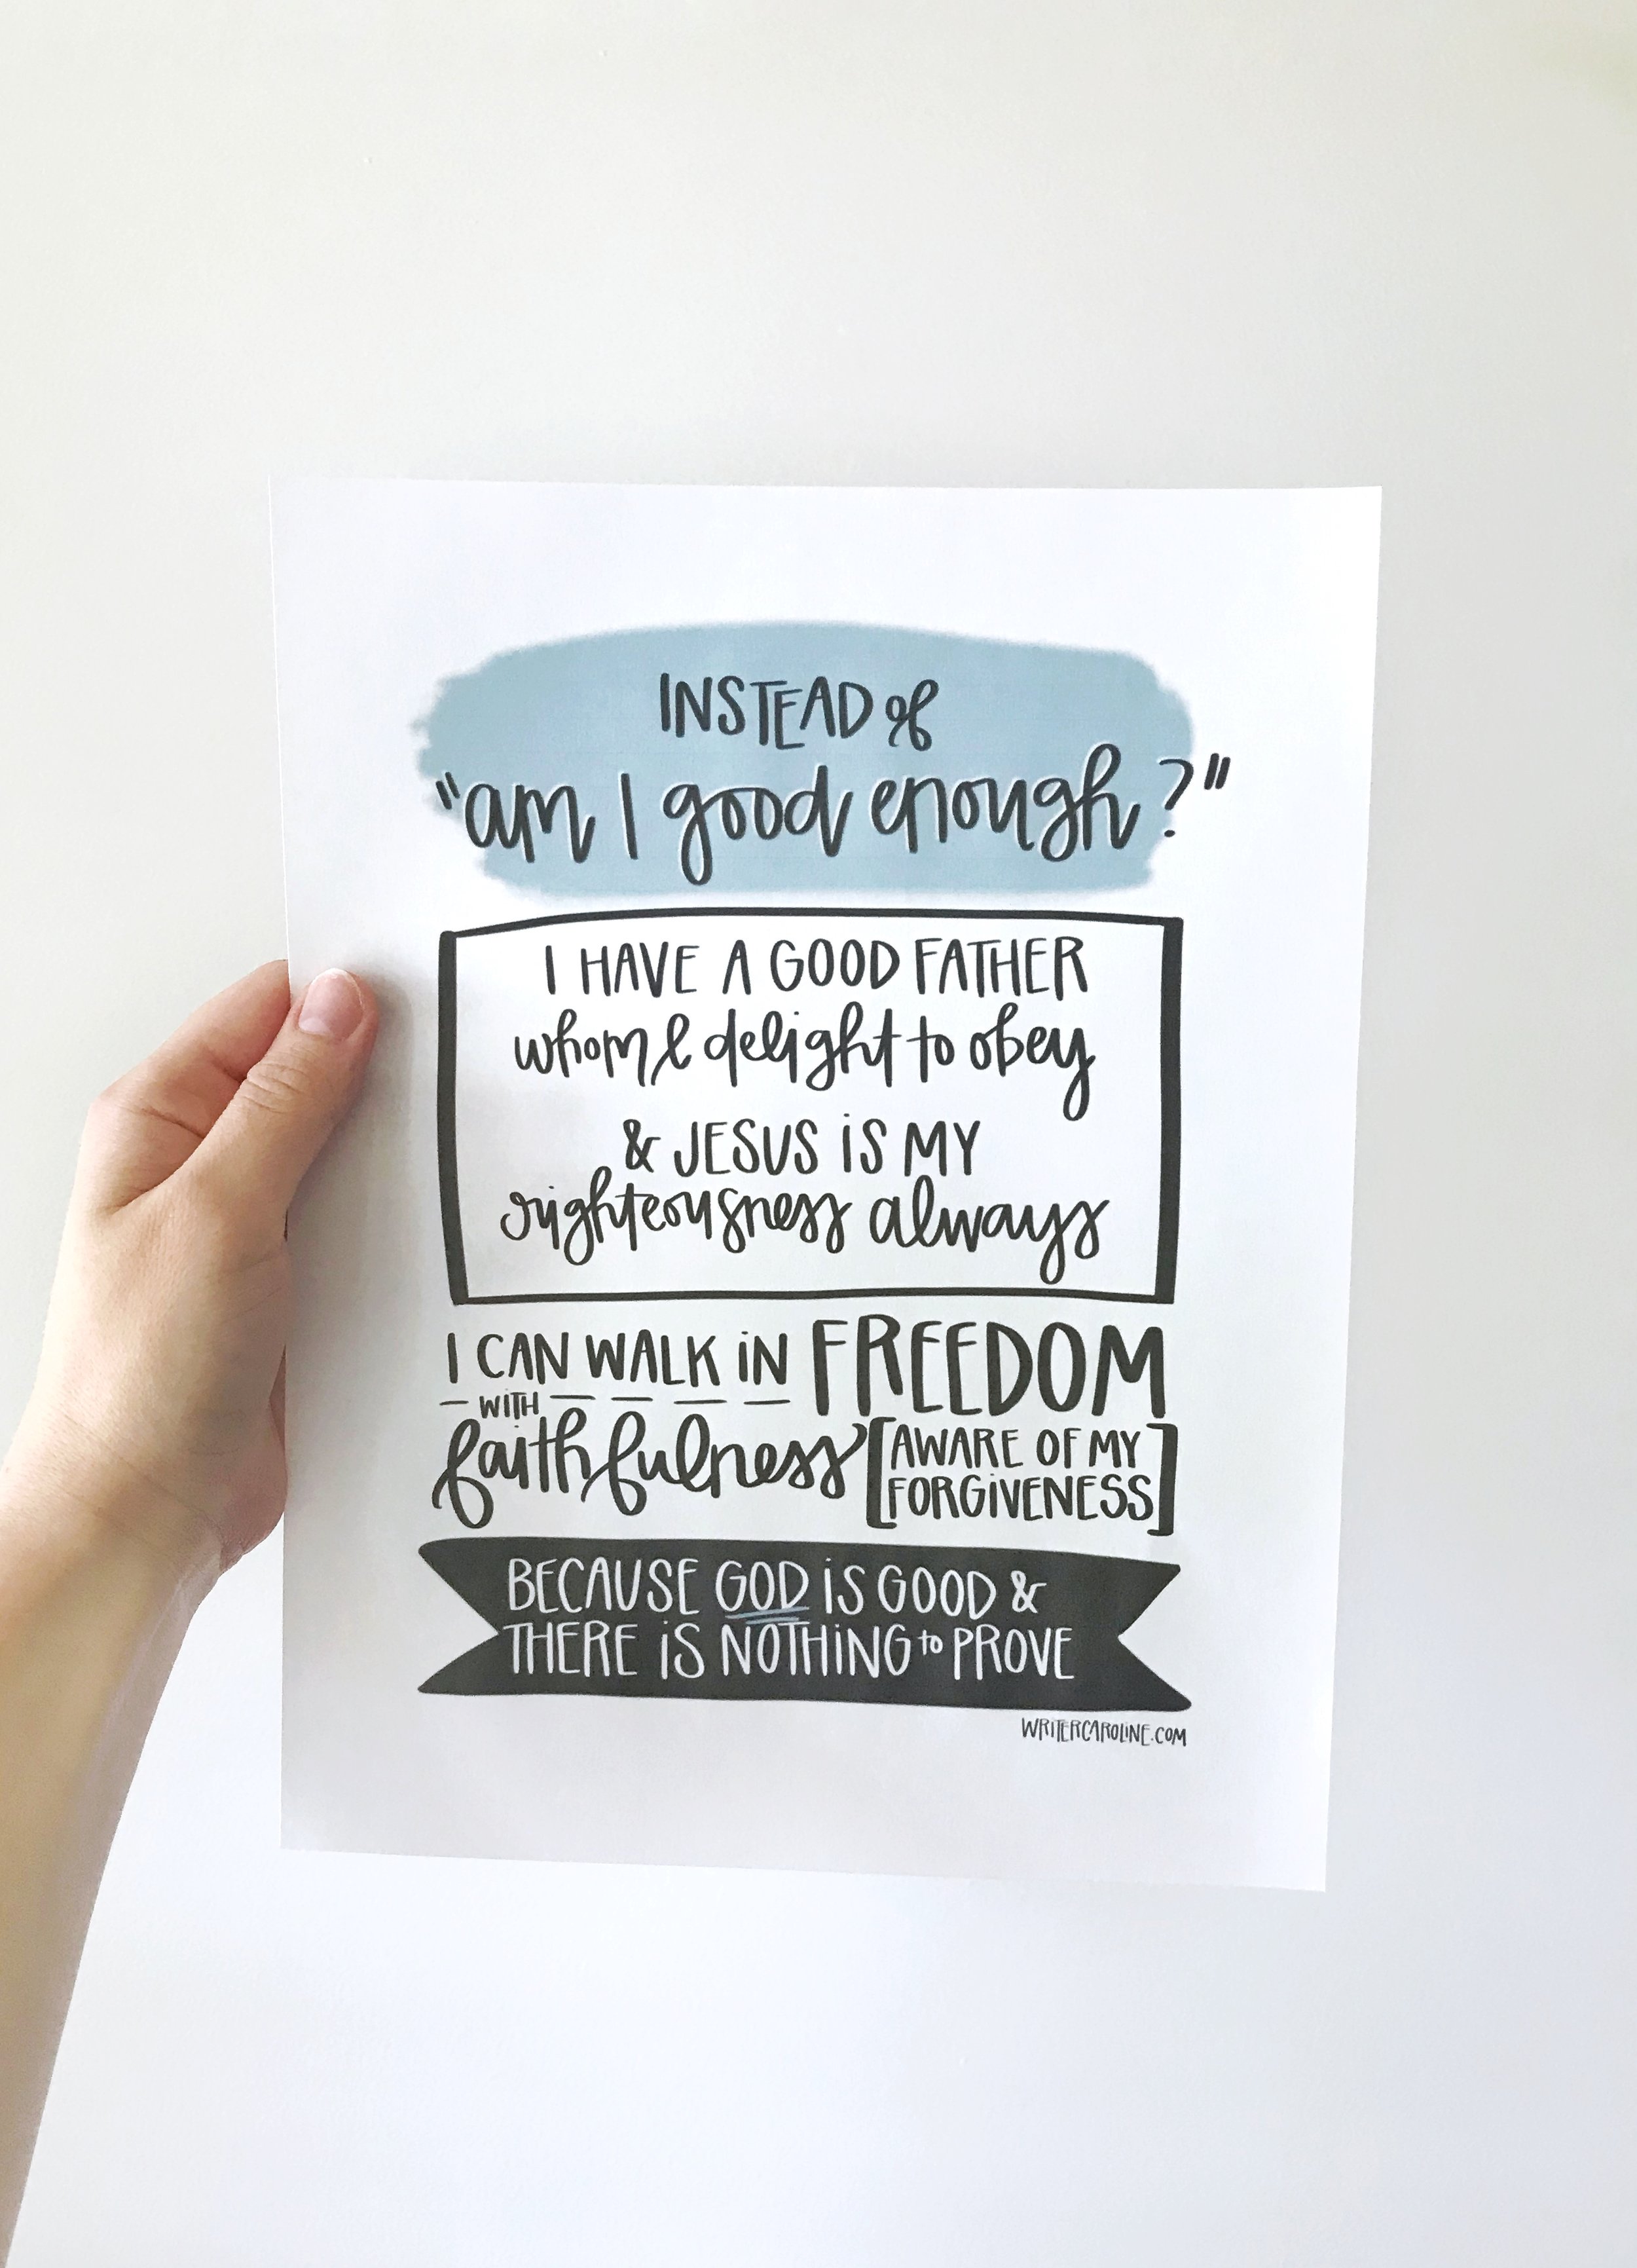 INSTEAD of
"am I good enough?"
I HAVE A GOOD FATHER
whom I delight to obey
& JESUS iS MY
righteousness always
I CAN WALK iN FREEDOM
WITH
faithfulness [AWARE OF MY
FORGiVENESS]
BECAUSE GOD iS GOOD &
THERE iS NOTHiNG to PROVE
WRiTERCAROLiNE.COM